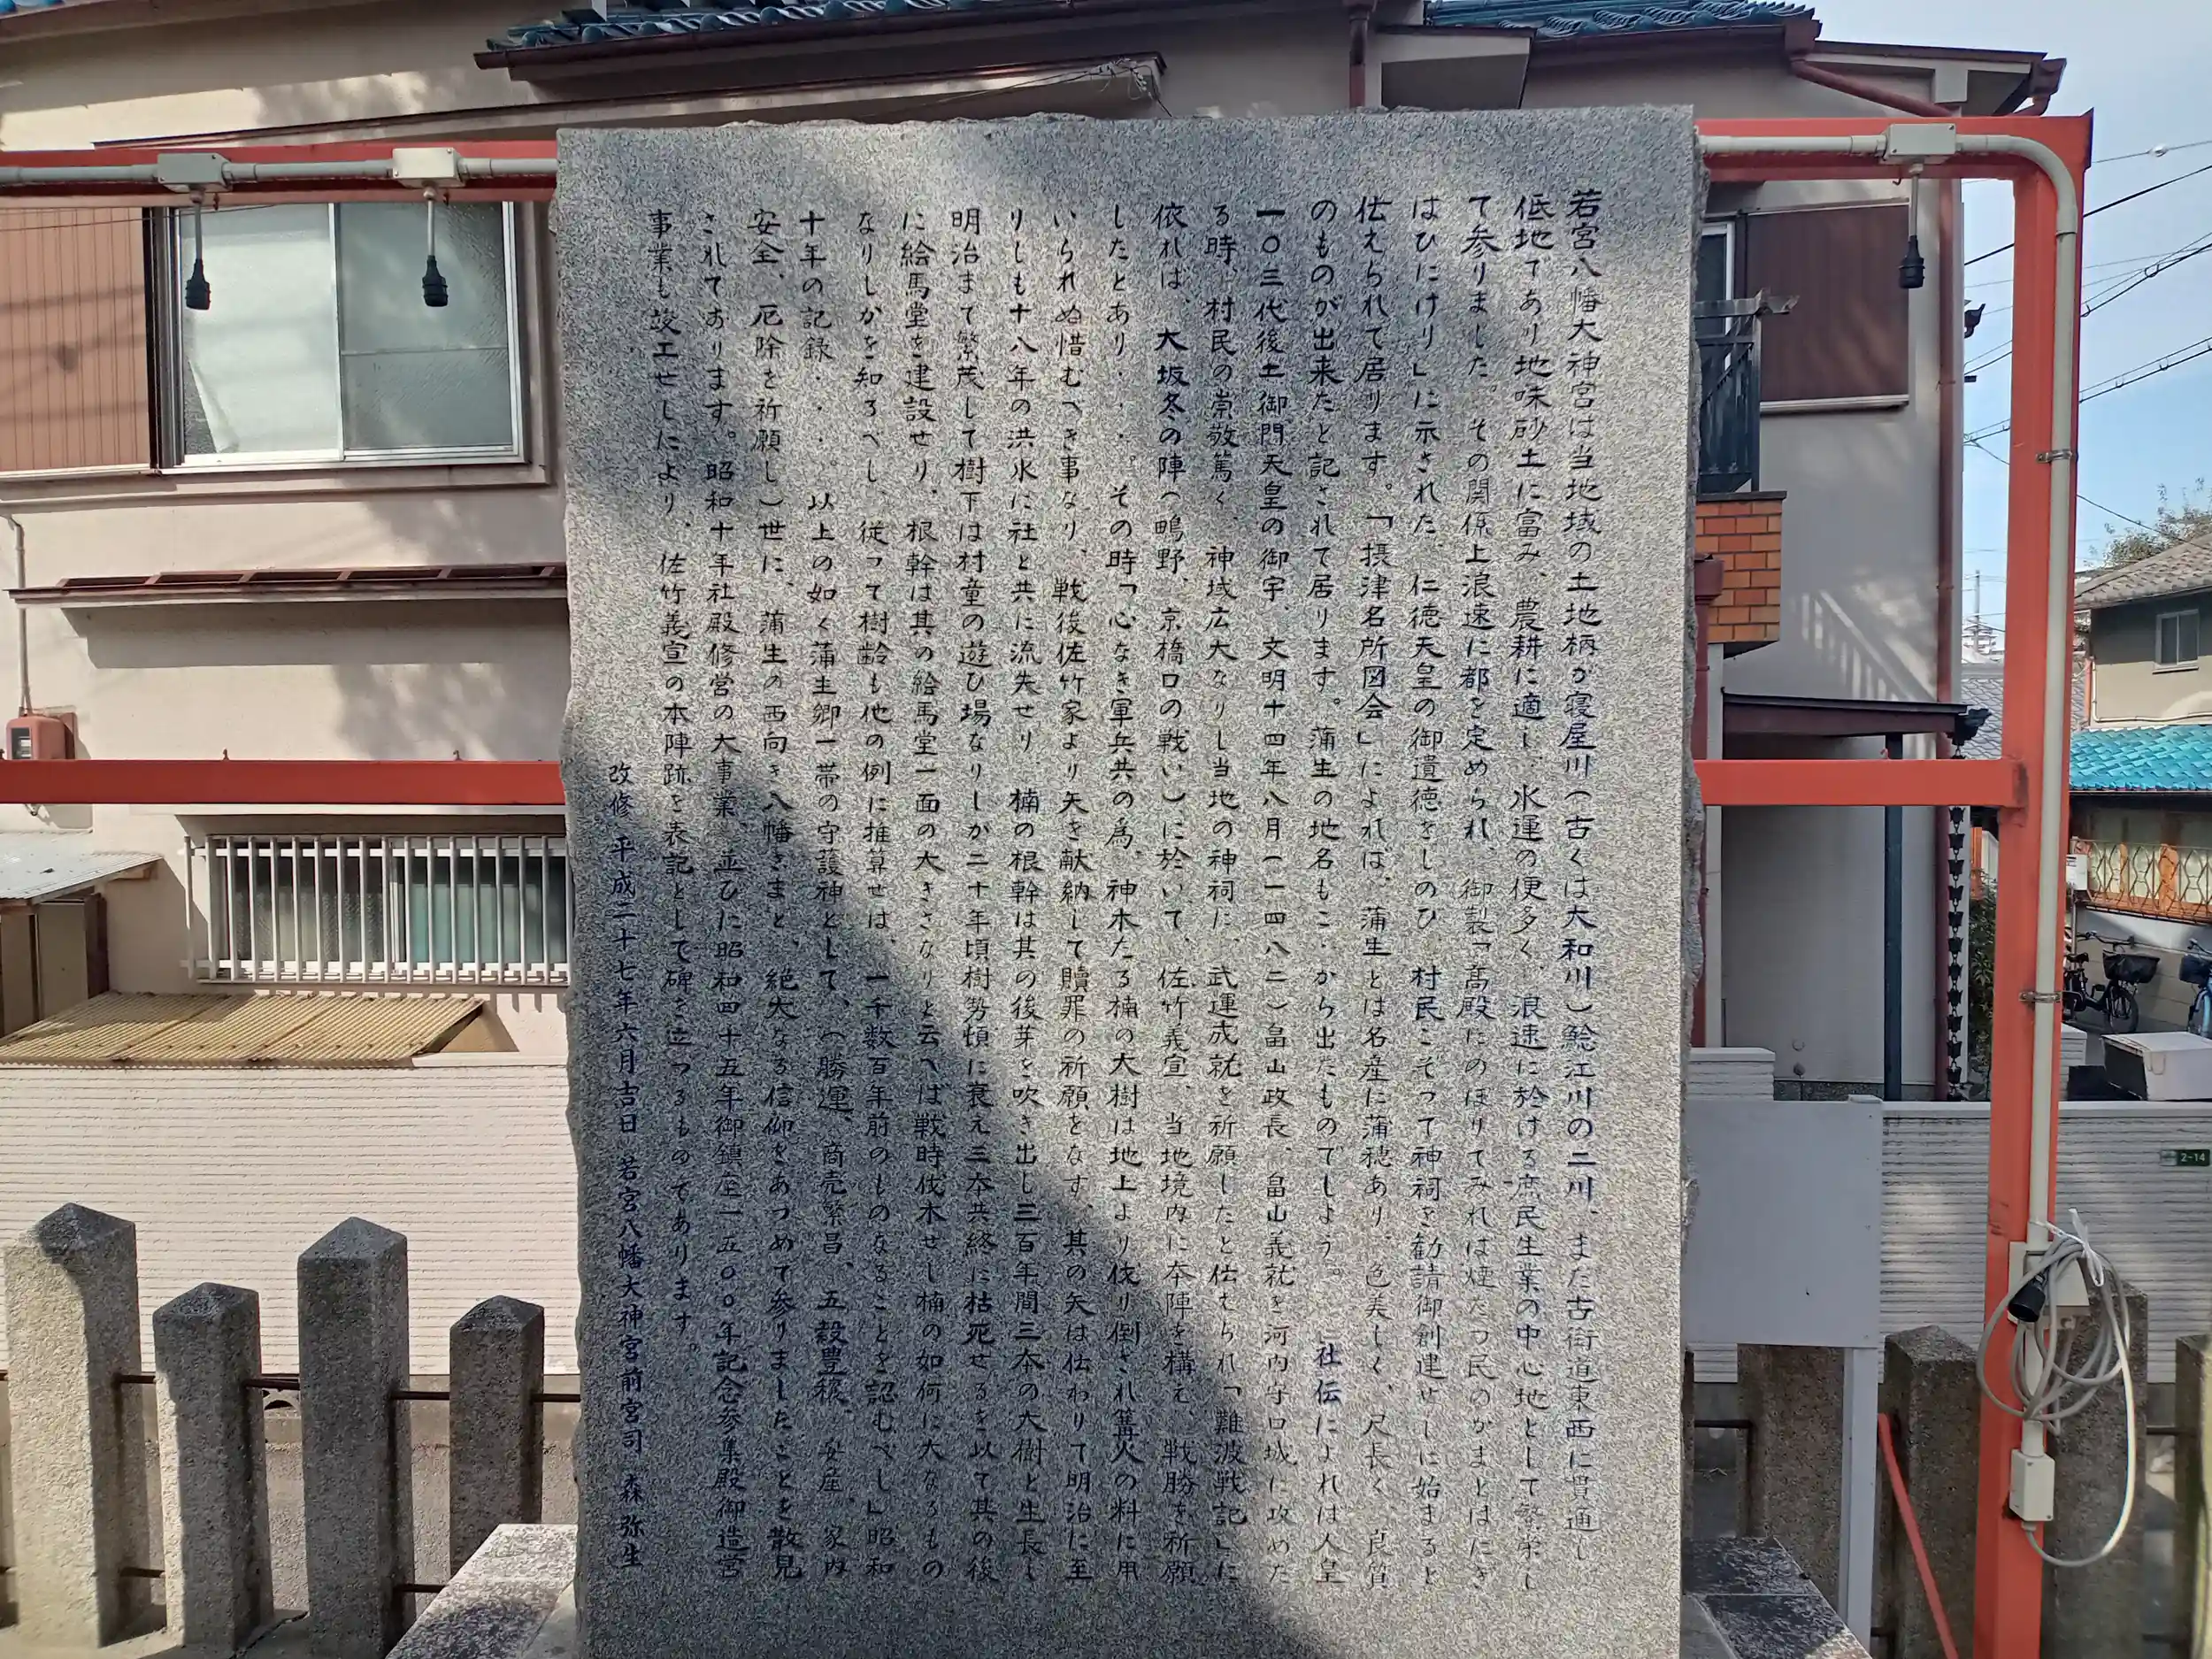 若宮八幡大神宮は当地域の土地柄が寝屋川(古くは大和川)鯰江川の二川、また古街道東西に貫通し
低地であり地味砂土に富み、農耕に適し、水運の便多く、浪速に於ける庶民生業の中心地として繁栄し
て参りました。その関係上浪速に都を定められ、御製「高殿にのぼりてみれば煙たつ民のかまどはにぎ
はひにけり」に示された、仁徳天皇の御遺徳をしのび、村民こぞって神祠を勧請御創建せしに始まると
伝えられて居ります。「摂津名所図会」によれば、蒲生とは名産に蒲穂あり、色美しく、尺長く、良質
のものが出来たと記されて居ります。蒲生の地名もこゝから出たものでしょう。 社伝によれば人皇
一〇三代後土御門天皇の御宇、文明十四年八月(一四八二)畠山政長、畠山義就を河内守口城に攻めた
る時、村民の崇敬篤く、神域広大なりし当地の神祠に、武運成就を祈願したと伝えられ「難波戦記」に
依れば、大坂冬の陣(鴫野、京橋口の戦い)に於いて、佐竹義宣、当地境内に本陣を構え、戦勝を祈願
したとあり・・・。その時「心なき軍兵共の為、神木たる楠の大樹は地上より伐り倒され篝火の料に用
いられぬ惜むべき事なり、戦後佐竹家より矢を献納して贖罪の祈願をなす、其の矢は伝わりて明治に至
りしも十八年の洪水に社と共に流失せり、楠の根幹は其の後芽を吹き出し三百年間三本の大樹と生長し
明治まで繁茂して樹下は村童の遊び場なりしが二十年頃樹勢頓に衰え三本共終に枯死せるを以て其の後
に絵馬堂を建設せり、根幹は其の絵馬堂一面の大きさなりと云へば戦時伐木せし楠の如何に大なるもの
なりしかを知るべし、従って樹齢も他の例に推算せば、一千数百年前のものなることを認むべし」昭和
十年の記録・・・。以上の如く蒲生郷一帯の守護神として、(勝運、商売繁昌、五穀豊穣、安産、家内
安全、厄除を祈願し)世に、蒲生の西向き八幡さまと、絶大なる信仰をあつめて参りましたことを散見
されております。昭和十年社殿修営の大事業、並びに昭和四十五年御鎮座一五〇〇年記念参集殿御造営
事業も竣工せしにより、佐竹義宣の本陣跡を表記として碑を立つるものであります。
改修 平成二十七年六月吉日 若宮八幡大神宮前宮司 森弥生
2-14